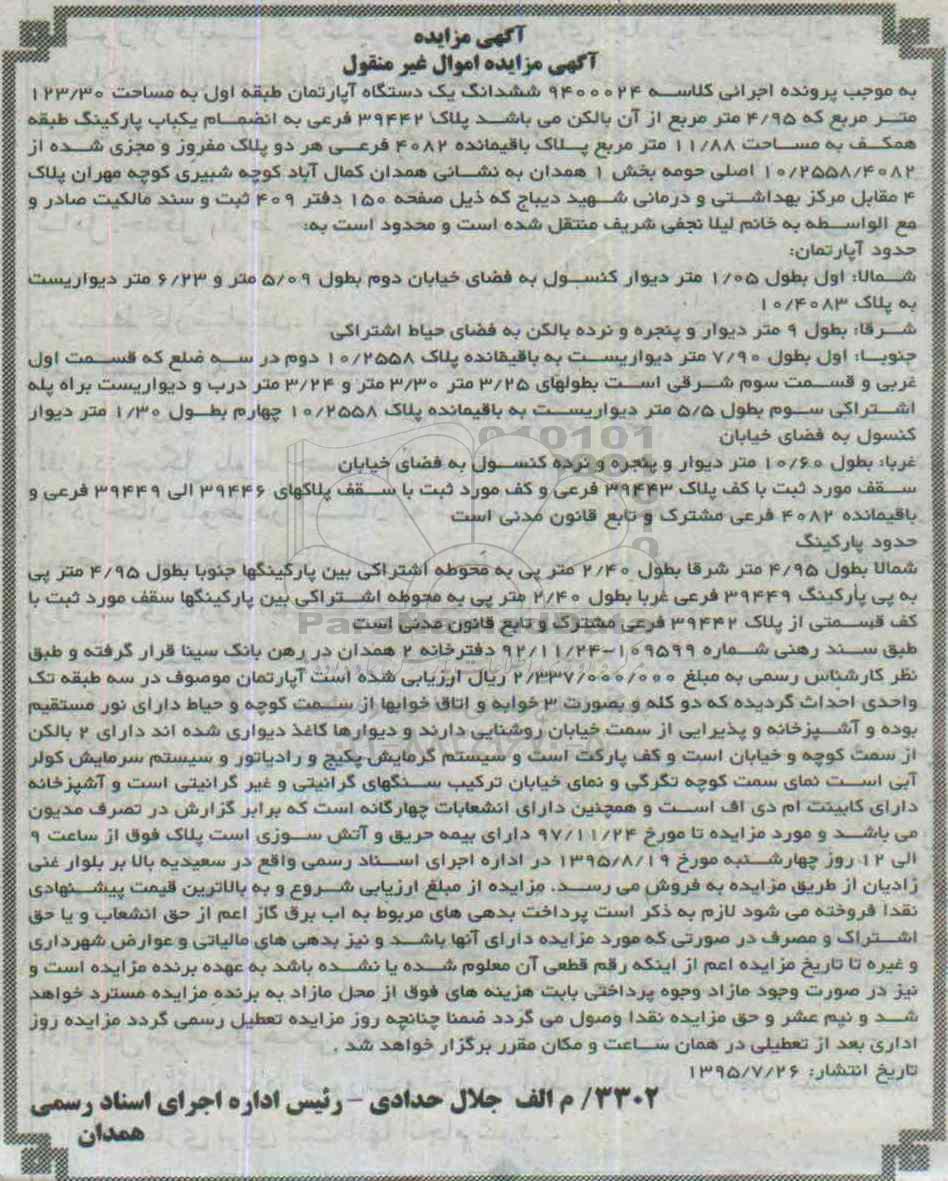 آگهی مزایده
آگهی مزایده اموال غیر منقول
به موجب پرونده اجرائی کلاسه ۹۴۰۰۰۲۴ ششدانگ یک دستگاه آپارتمان طبقه اول به مساحت ۱۲۳/۳۰
متر مربع که ۴/۹۵ متر مربع از آن بالکن می باشد پلاک ۳۹۴۴۲ فرعی به انضمام یکباب پارکینگ طبقه
همکف به مساحت ۱۱/۸۸ متر مربع پلاک باقیمانده ۴۰۸۲ فرعی هر دو پلاک مفروز و مجزی شده از
۱۰/۲۵۵۸/۴۰۸۲ اصلی حومه بخش ۱ همدان به نشانی همدان کمال آباد کوچه شبیری کوچه مهران پلاک
۴ مقابل مرکز بهداشتی و درمانی شهید دیباج که ذیل صفحه ۱۵۰ دفتر ۴۰۹ ثبت و سند مالکیت صادر و
مع الواسطه به خانم لیلا نجفی شریف منتقل شده است و محدود است به:
حدود آپارتمان:
شمالا: اول بطول ۱/۰۵ متر دیوار کنسول به فضای خیابان دوم بطول ۵/۰۹ متر و ۶/۲۳ متر دیواریست
به پلاک ۱۰/۴۰۸۳
شرقا: بطول ۹ متر دیوار و پنجره و نرده بالکن به فضای حیاط اشتراکی
جنوبا: اول بطول ۷/۹۰ متر دیواریست به باقیقانده پلاک ۱۰/۲۵۵۸ دوم در سه ضلع که قسمت اول
غربی و قسمت سوم شرقی است بطولهای ۳/۲۵ متر ۳/۳۰ متر و ۳/۲۴ متر درب و دیواریست براه پله
اشتراکی سوم بطول ۵/۵ متر دیواریست به باقیمانده پلاک ۱۰/۲۵۵۸ چهارم بطول ۱/۳۰ متر دیوار
کنسول به فضای خیابان
غربا: بطول ۱۰/۶۰ متر دیوار و پنجره و نرده کنسول به فضای خیابان
سقف مورد ثبت با کف پلاک ۳۹۴۴۳ فرعی و کف مورد ثبت با سقف پلاکهای ۳۹۴۴۶ الی ۳۹۴۴۹ فرعی و
باقیمانده ۴۰۸۲ فرعی مشترک و تابع قانون مدنی است
حدود پارکینگ
شمالا بطول ۴/۹۵ متر شرقا بطول ۲/۴۰ متر پی به محوطه اشتراکی بین پارکینگها جنوبا بطول ۴/۹۵ متر پی
به پی پارکینگ ۳۹۴۴۹ فرعی غربا بطول ۲/۴۰ متر پی به محوطه اشتراکی بین پارکینگها سقف مورد ثبت با
کف قسمتی از پلاک ۳۹۴۴۲ فرعی مشترک و تابع قانون مدنی است
طبق سند رهنی شماره ۱۰۹۵۹۹-۹۲/۱۱/۲۴ دفترخانه ۲ همدان در رهن بانک سینا قرار گرفته و طبق
نظر کارشناس رسمی به مبلغ ۲/۳۳۷/۰۰۰/۰۰۰ ریال ارزیابی شده است آپارتمان موصوف در سه طبقه تک
واحدی احداث گردیده که دو کله و بصورت ۳ خوابه و اتاق خوابها از سمت کوچه و حیاط دارای نور مستقیم
بوده و آشپزخانه و پذیرایی از سمت خیابان روشنایی دارند و دیوارها کاغذ دیواری شده اند دارای ۲ بالکن
از سمت کوچه و خیابان است و کف پارکت است و سیستم گرمایش پکیج و رادیاتور و سیستم سرمایش کولر
آبی است نمای سمت کوچه تگرگی و نمای خیابان ترکیب سنگهای گرانیتی و غیر گرانیتی است و آشپزخانه
دارای کابینت ام دی اف است و همچنین دارای انشعابات چهارگانه است که برابر گزارش در تصرف مدیون
می باشد و مورد مزایده تا مورخ ۹۷/۱۱/۲۴ دارای بیمه حریق و آتش سوزی است پلاک فوق از ساعت ۹
الی ۱۲ روز چهارشنبه مورخ ۱۳۹۵/۸/۱۹ در اداره اجرای اسناد رسمی واقع در سعیدیه بالا بر بلوار غنی
زادیان از طریق مزایده به فروش می رسد. مزایده از مبلغ ارزیابی شروع و به بالاترین قیمت پیشنهادی
نقدا فروخته می شود لازم به ذکر است پرداخت بدهی های مربوط به اب برق گاز اعم از حق انشعاب و یا حق
اشتراک و مصرف در صورتی که مورد مزایده دارای آنها باشد و نیز بدهی های مالیاتی و عوارض شهرداری
و غیره تا تاریخ مزایده اعم از اینکه رقم قطعی آن معلوم شده یا نشده باشد به عهده برنده مزایده است و
نیز در صورت وجود مازاد وجوه پرداختی بابت هزینه های فوق از محل مازاد به برنده مزایده مسترد خواهد
شد و نیم عشر و حق مزایده نقدا وصول می گردد ضمنا چنانچه روز مزایده تعطیل رسمی گردد مزایده روز
اداری بعد از تعطیلی در همان ساعت و مکان مقرر برگزار خواهد شد .
تاریخ انتشار: ۱۳۹۵/۷/۲۶
۳۳۰۲/ م الف جلال حدادی - رئیس اداره اجرای اسناد رسمی
همدان